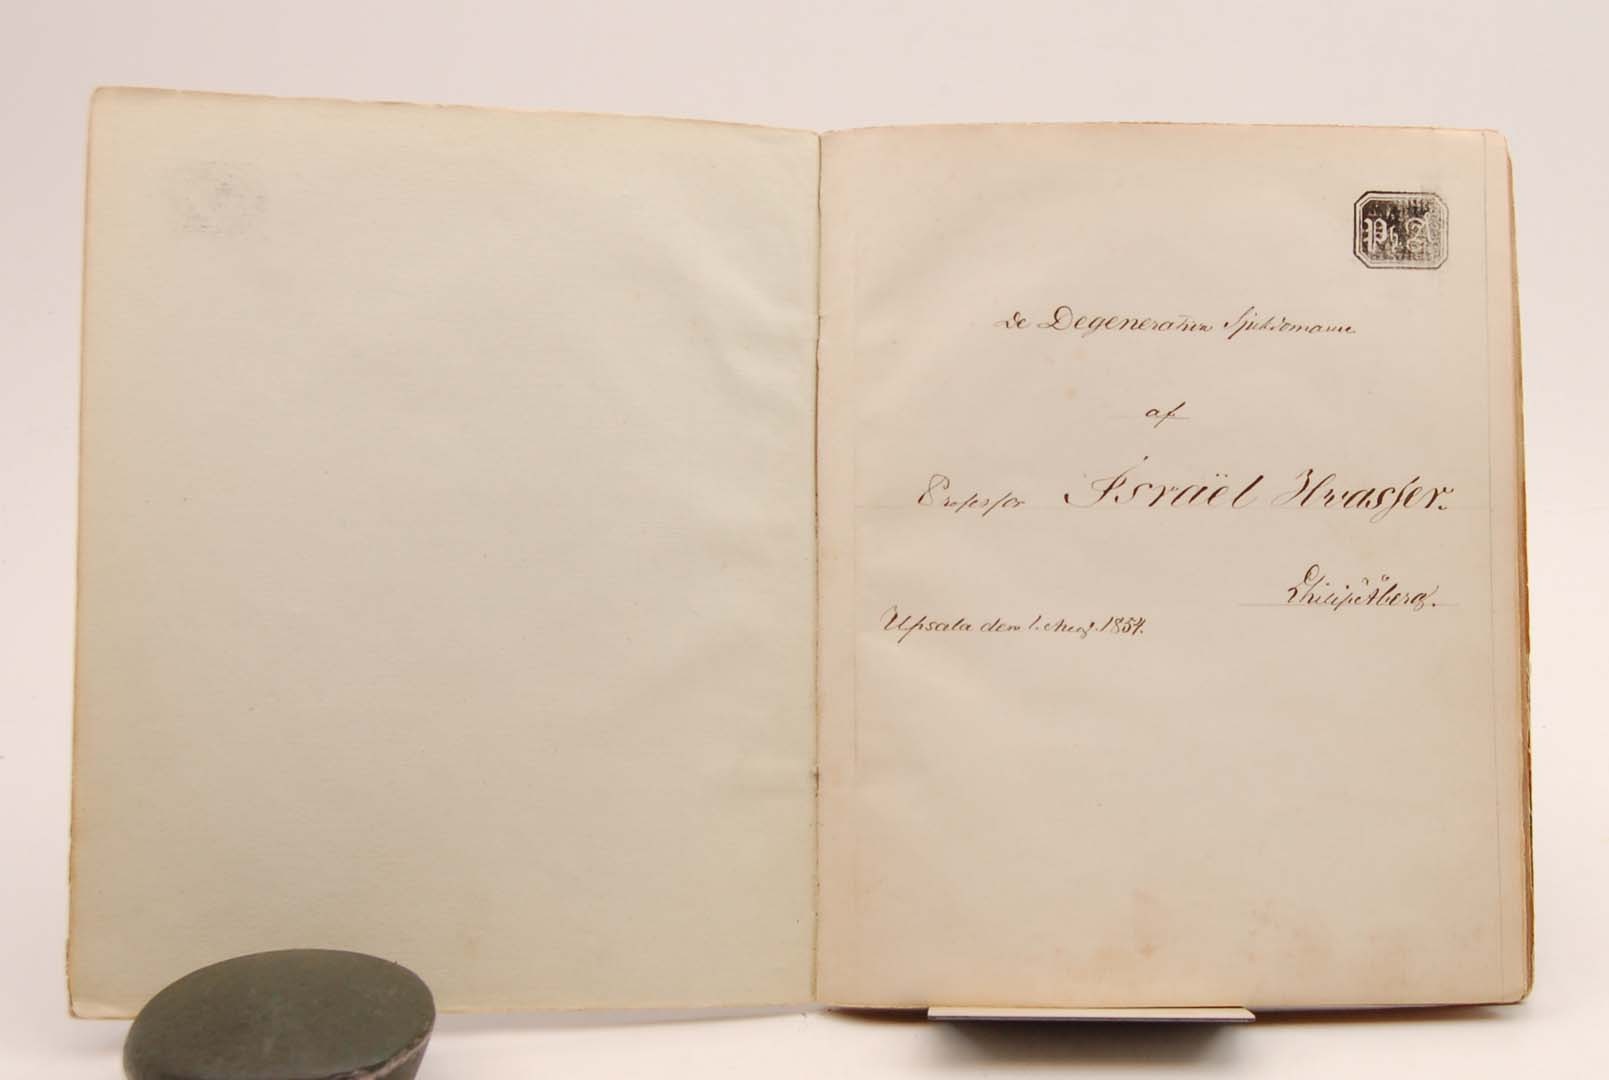 Ph A
De Degenerativa Sjukdomarne
af
Professor Israël Hwasser.
Philip Åberg.
Upsala den 1. Aug. 1854.